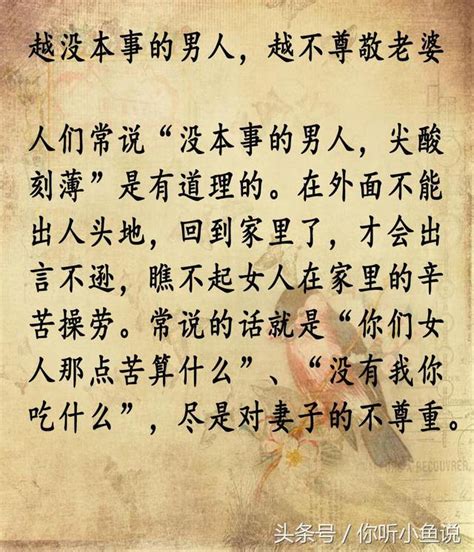 越没本事的男人，越不尊敬老婆
人们常说“没本事的男人，尖酸
刻薄”是有道理的。在外面不能
出人头地，回到家里了，才会出
言不逊，瞧不起女人在家里的辛
苦操劳。常说的话就是“你们女
人那点苦算什么”、“没有我你
吃什么”，尽是对妻子的不尊重。
RECOUVRER.
头条号/你听小鱼说